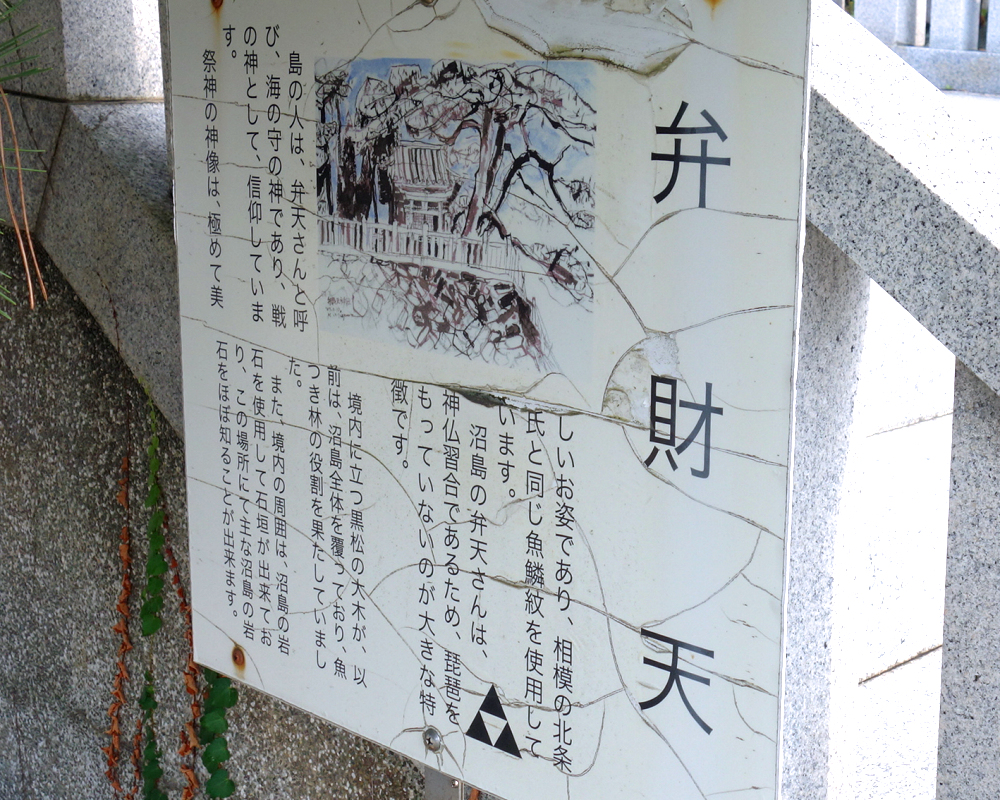 弁財天
島の人は、弁天さんと呼
び、海の守の神であり、戦
の神として、信仰していま
す。
祭神の神像は、極めて美
しいお姿であり、相模の北条
氏と同じ魚鱗紋を使用して
います。
沼島の弁天さんは、
神仏習合であるため、琵琶を
もっていないのが大きな特
徴です。
境内に立つ黒松の大木が、以
前は、沼島全体を覆っており、魚
つき林の役割を果たしていまし
た。
また、境内の周囲は、沼島の岩
石を使用して石垣が出来てお
り、この場所にて主な沼島の岩
石をほぼ知ることが出来ます。